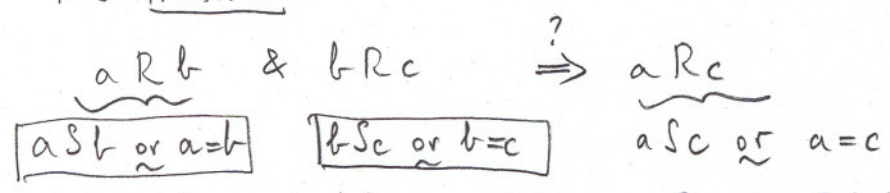 ?
a R b & b R c ⟹ a R c
a S b or a=b b S c or b=c a S c or a=c